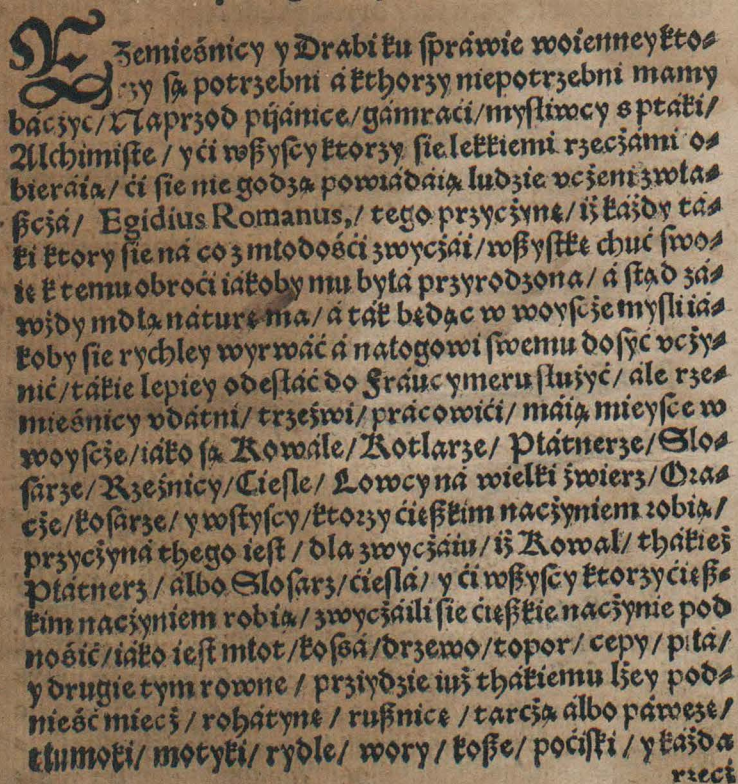 RZemieśnicy y Drabi ku spráwie woienney kto⸗
rzy są potrzebni á kthorzy niepotrzebni mamy
báczyć/ Naprzod pijánice/ gámraći/ mysliwcy s ptáki/
Alchimiste/ y ći wßyscy ktorzy sie lekkiemi rzeczámi o⸗
bieráią/ ći sie nie godzą powiádáią ludzie vczeni zwła⸗
ßczá/ Egidius Romanus,/ tego przyczynę/ iż káżdy tá⸗
ki ktory sie ná co z młodośći zwyczái/ wßystkę chuć swo⸗
ię k temu obroći iákoby mu byłá przyrodzona/ á stąd zá⸗
wżdy mdłą náturę ma/ á ták będąc w woyscze mysli iá⸗
koby sie rychley wyrwáć á nałogowi swemu dosyć vczy⸗
nić/ tákie lepiey odesłáć do Fráucymeru służyć/ ale rze⸗
mieśnicy vdátni/ trzeźwi/ prácowići/ máią mieysce w
woyscże/ iáko są Kowále/ Kotlarze/ Płátnerze/ Slo⸗
sárze/ Rzeźnicy/ Cieśle/ Lowcy ná wielki źwierz/ Orá⸗
cże/ kosárze/ y wstyscy/ ktorzy ćięßkim naczyniem robią/
przyczyná thego iest/ dla zwyczáiu/ iż Kowal/ thákież
Płátnerz/ álbo Slosarz/ ćieslá/ y ći wßyscy ktorzy ćięß⸗
kim naczyniem robią/ zwyczáili sie ćięßkie naczynie pod
nośić/ iáko iest młot/ kossá/ drzewo/ topor/ cepy/ piłá/
y drugie tym rowne/ prziydzie iuż thákiemu lżey pod⸗
nieść miecż/ rohátynę/ rußnicę/ tarczą álbo páwezę/
tłumoki/ motyki/ rydle/ wory/ koße/ poćiski/ y káżda
rzecż